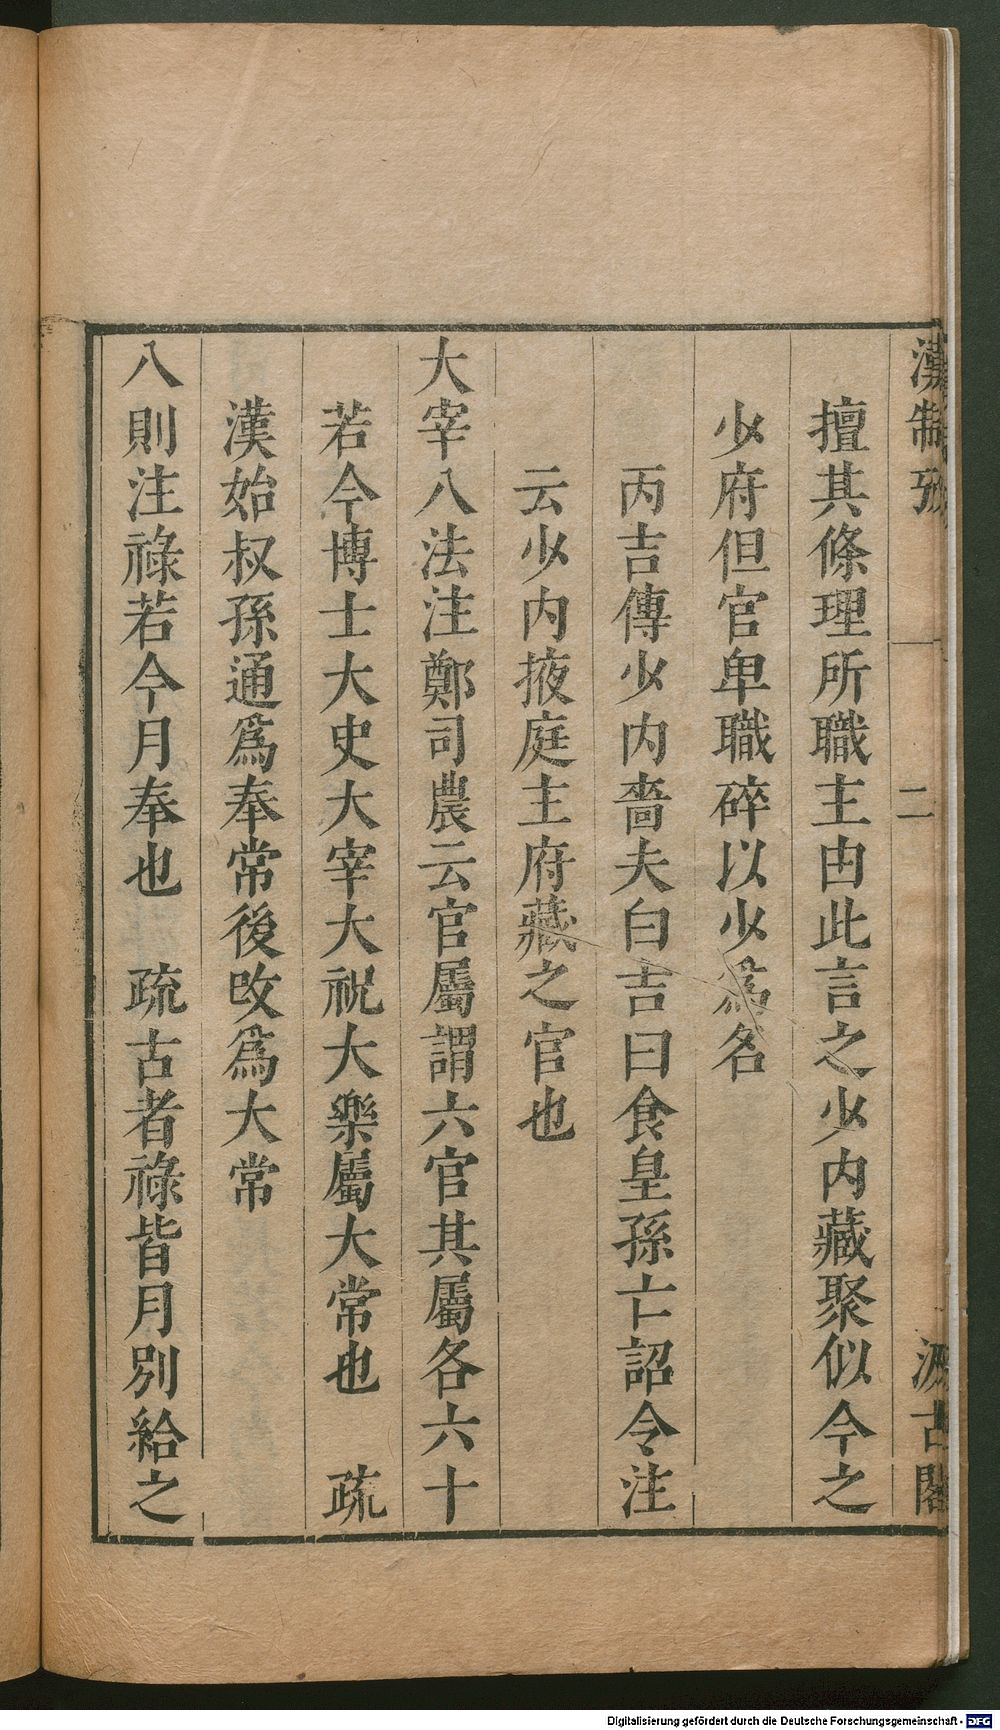 漢制攷
二
汲古閣
擅其條理所職主由此言之少内藏聚似今之
少府但官卑職碎以少爲名
丙吉傳少内嗇夫白吉曰食皇孫亡詔令注
云少内掖庭主府藏之官也
大宰八法注鄭司農云官屬謂六官其屬各六十
若今博士大史大宰大祝大樂屬大常也 疏
漢始叔孫通爲奉常後改爲大常
八則注祿若今月奉也 疏古者祿皆月別給之
Digitalisierung gefördert durch die Deutsche Forschungsgemeinschaft - DFG